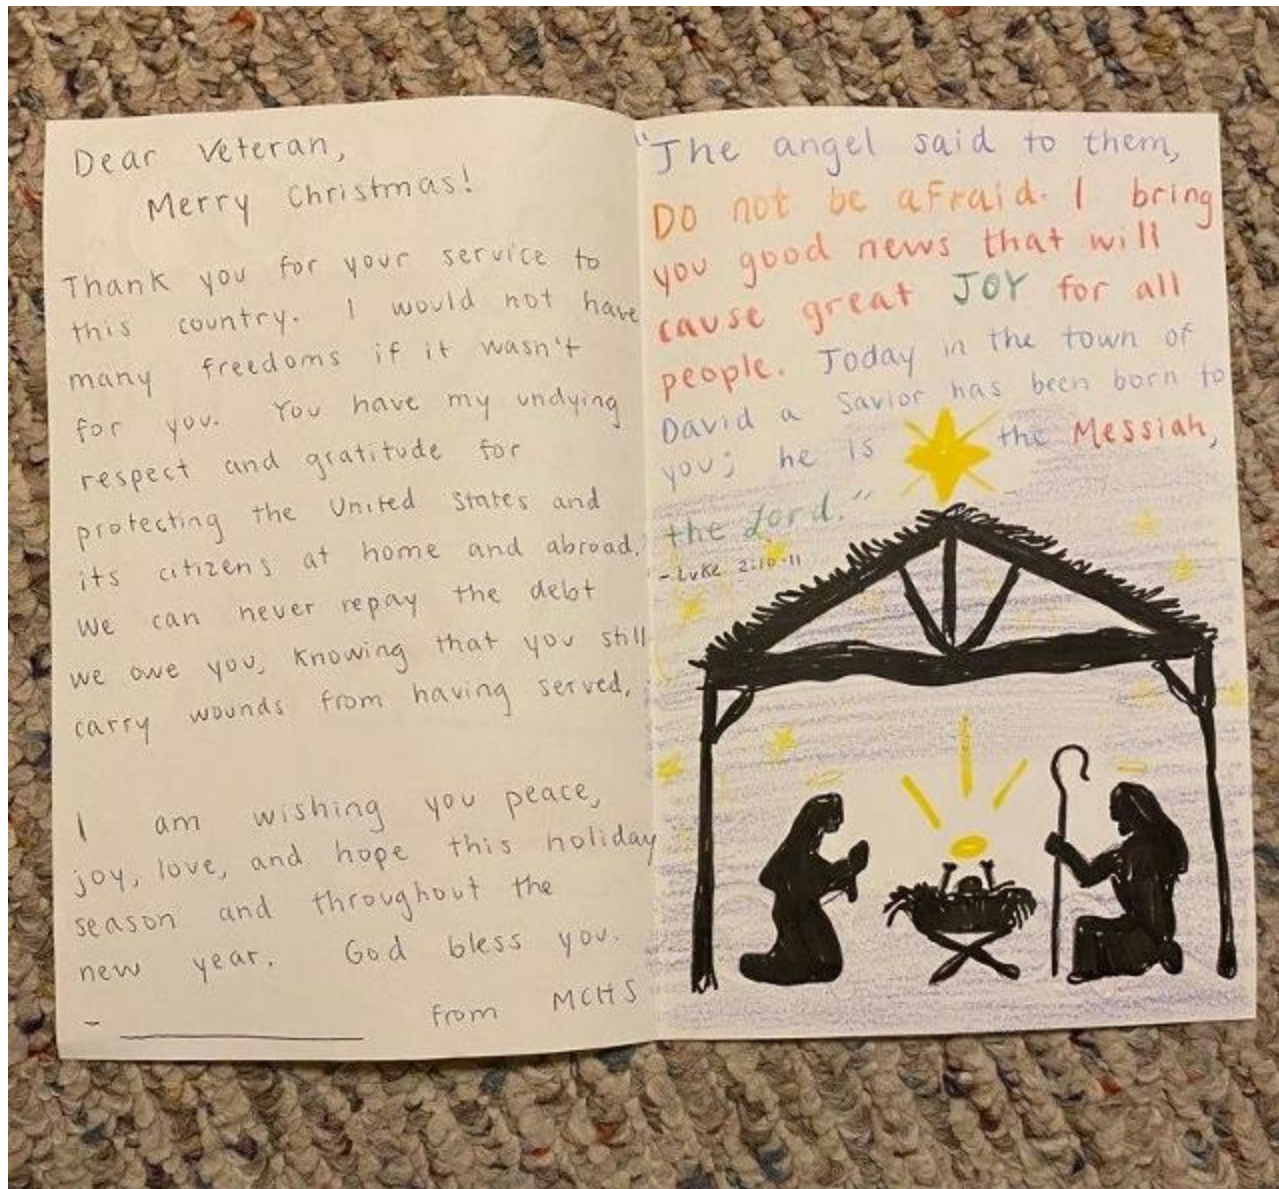 Dear Veteran,
Merry Christmas!
Thank you for your service to
this country. I would not have
many freedoms if it wasn't
for you. You have my undying
respect and gratitude for
protecting the United States and
its citizens at home and abroad.
We can never repay the debt
we owe you, knowing that you still
carry wounds from having served.
I am wishing you peace,
joy, love, and hope this holiday
season and throughout the
new year. God bless you.
- from MCHS
"The angel said to them,
Do not be afraid. I bring
you good news that will
cause great JOY for all
people. Today in the town of
David a Savior has been born to
you; he is the Messiah,
the Lord."
- Luke 2:10-11